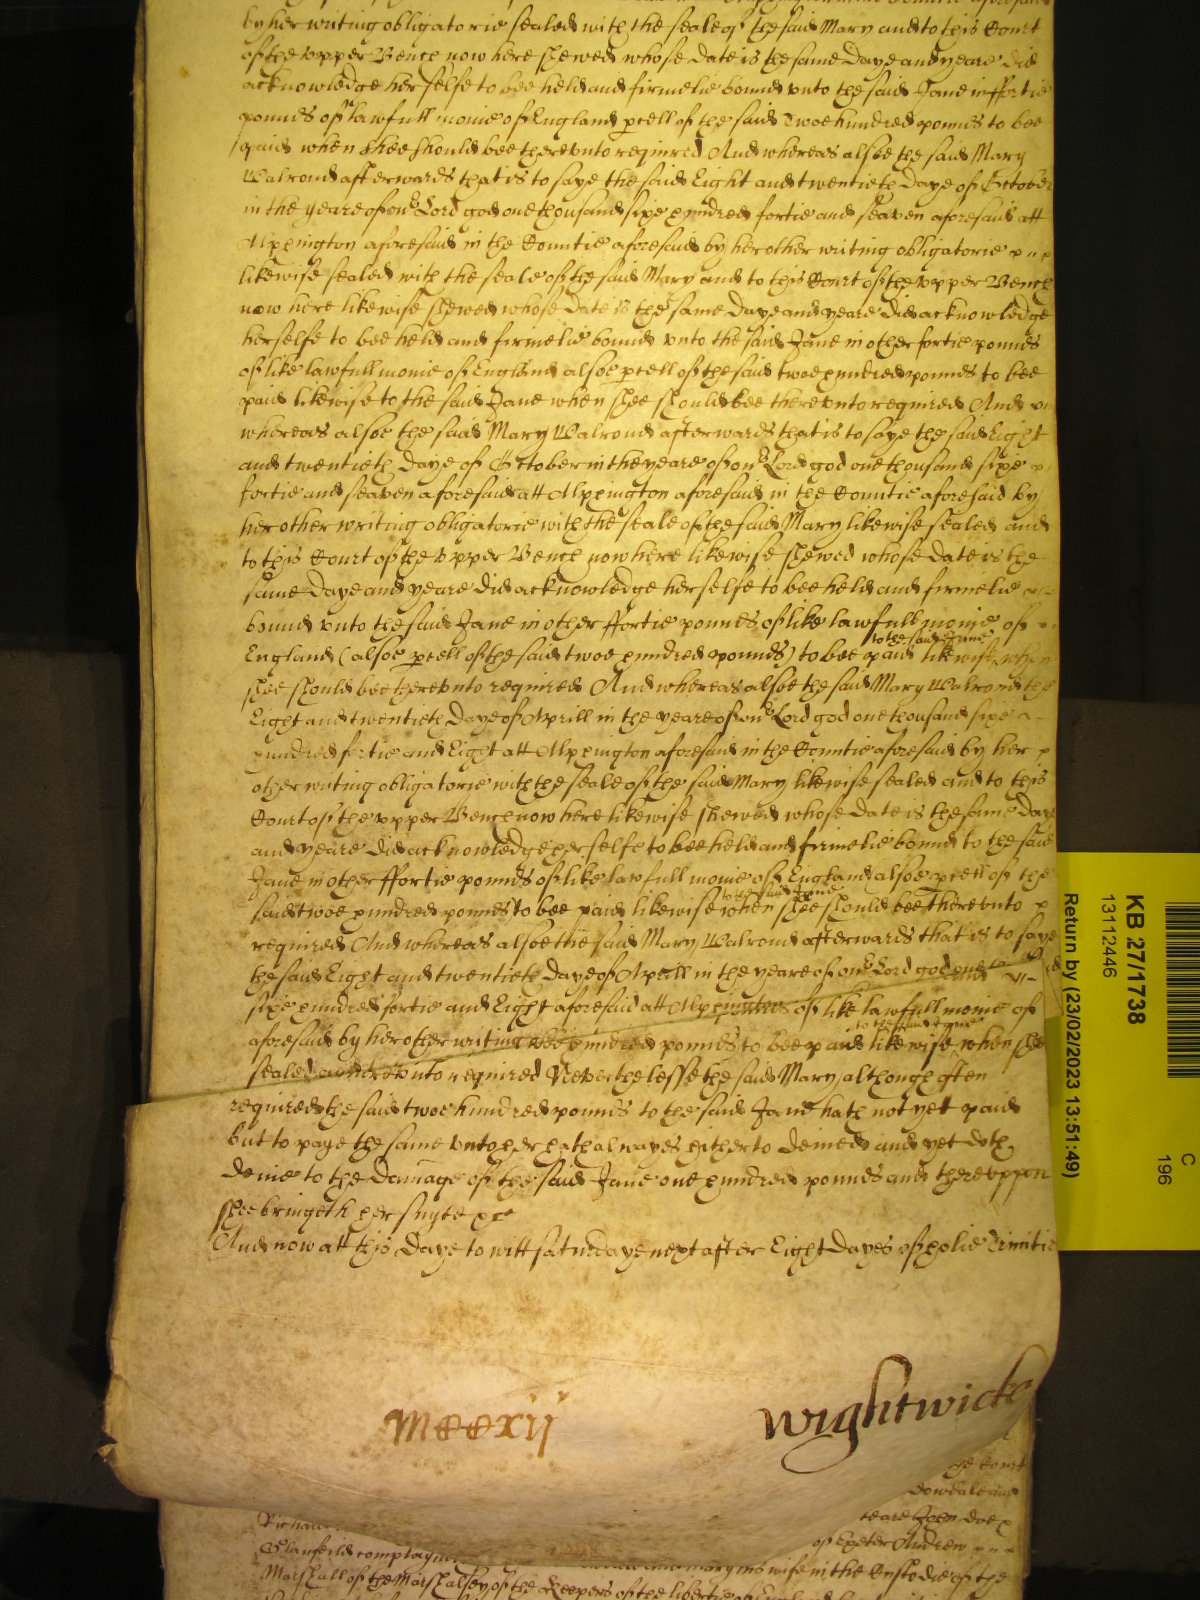 by her writing obligatorie sealed with the seale of the said Mary and to this Court
of the vpper Bench now here shewed whose date is the same daye and yeare did
acknowledge her selfe to bee held and firmelie bound vnto the said Jane in ffortie
pounds of lawfull monie of England pcell of the said Twoe hundred pounds to bee
paid when shee should bee therevnto required And whereas alsoe the said Mary
Walrond afterwards that is to saye the said Eight and twentieth daye of October
in the yeare of our Lord god one thousand sixe hundred fortie and seaven aforesaid att
Alphington aforesaid in the Countie aforesaid by her other writing obligatorie
likewise sealed with the seale of the said Mary and to this Court of the vpper Bench
now here likewise shewed whose date is the same daye and yeare did acknowledge
herselfe to bee held and firmelie bound vnto the said Jane in other fortie pounds
of like lawfull monie of England alsoe pcell of the said twoe hundred pounds to bee
paid likewise to the said Jane when shee should bee therevnto required And
whereas alsoe the said Mary Walrond afterwards that is to saye the said Eight
and twentieth daye of October in the yeare of our Lord god one thousand sixe
fortie and seaven aforesaid att Alphington aforesaid in the Countie aforesaid by
her other writing obligatorie with the seale of the said Mary likewise sealed and
to this Court of the vpper Bench now here likewise shewed whose date is the
same daye and yeare did acknowledge herselfe to bee held and firmelie
bound vnto the said Jane in other ffortie pounds of like lawfull monie of
England (alsoe pcell of the said twoe hundred pounds) to bee paid to the said Jane likewise when
shee should bee therevnto required And whereas alsoe the said Mary Walrond the
Eight and twentieth daye of Aprill in the yeare of our Lord god one thousand sixe
hundred fortie and Eight att Alphington aforesaid in the Countie aforesaid by her
other writing obligatorie with the seale of the said Mary likewise sealed and to this
Court of the vpper Bench now here likewise shewed whose date is the same daye
and yeare did acknowledge herselfe to bee held and firmelie bound to the said
Jane in other ffortie pounds of like lawfull monie of England alsoe pcell of the
said twoe hundred pounds to bee paid likewise to the said Jane when shee should bee therevnto
required And whereas alsoe the said Mary Walrond afterwards that is to saye
the said Eight and twentieth daye of Aprill in the yeare of our Lord god one
sixe hundred fortie and Eight aforesaid att Alphington of like lawfull monie of
aforesaid by her other writing hundred pounds to bee paid to the said Jane likewise when shee
sealed therevnto required Neverthelesse the said Mary although often
required the said twoe hundred pounds to the said Jane hath not yett paid
but to paye the same vnto her hath alwayes hitherto denied and yet doth
denie to the damage of the said Jane one hundred pounds and therevppon
shee bringeth her suyte &c
And now att this daye to witt saturdaye next after Eight dayes of holie Trinitie
MCCxij
Wightwicke
the Court
Richard
of Exeter Andrew
Glanfeild complayn mary his wife in the Custodie of the
Marshall of the Marshalsey of the Keepers of the libertie of England
KB 27/1738
13112446
Return by (23/02/2023 13:51:49)
C
196